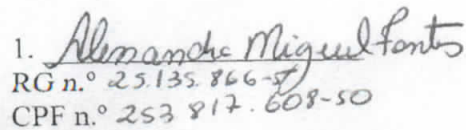 1. Alessandro Miguel Fontes
RG n.º 25.135.866-
CPF n.º 253 817.608-50